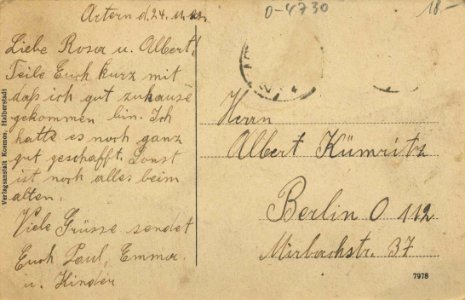 Artern d. 24.
O-4730
18.-
Liebe Rosa u. Albert!
Teile Euch kurz mit
daß ich gut zuhause
gekommen bin. Ich
hatte es noch ganz
gut geschafft. Sonst
ist noch alles beim
alten.
Viele Grüsse sendet
Euch Paul, Emma
u. Kinder
Verlagsanstalt Kosmos, Halberstadt
Herrn
Albert Kümritz
Berlin O 112
Mirbachstr. 37
7978